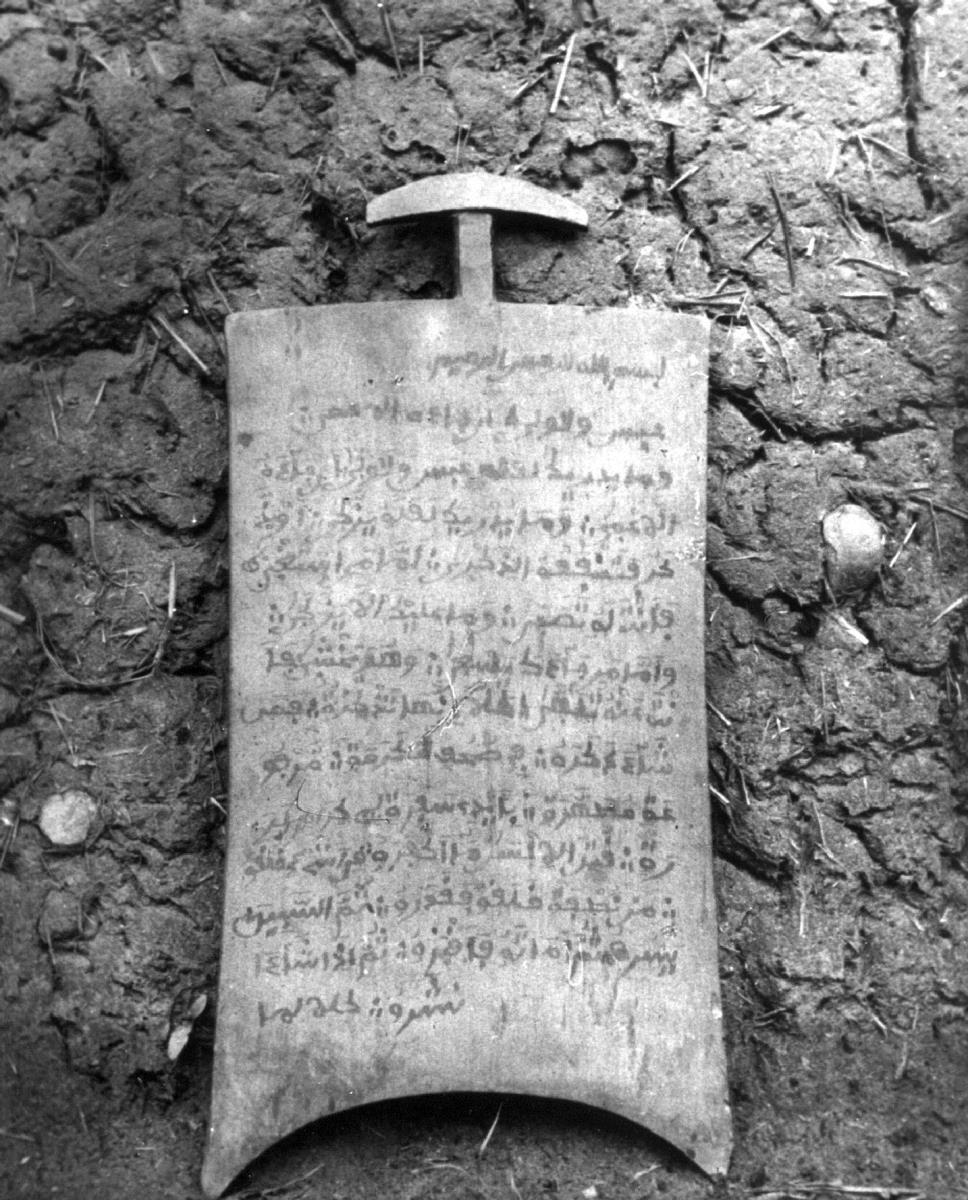 بسم الله الرحمن الرحيم
عبس وتولى ان جاءه الاعمى
وما يدريك لعله عبس وتولى ان جاءه
الاعمى وما يدريك لعله يزكى او يذ
كر فتنفعه الذكرى اما من استغنى
فانت له تصدى وما عليك الا يزكى
واما من جاءك يسعى وهو يخشى فا
نت عنه تلهى كلا انها تذكرة فمن
شاء ذكره في صحف مكرمة مرفو
عة مطهرة بايدي سفرة كرام بر
رة قتل الانسن ما اكفره من اي شيء خلقه
من نطفة خلقه فقدره ثم السبيل
يسره ثم اماته فاقبره ثم اذا شاء ا
نشره كلا لما